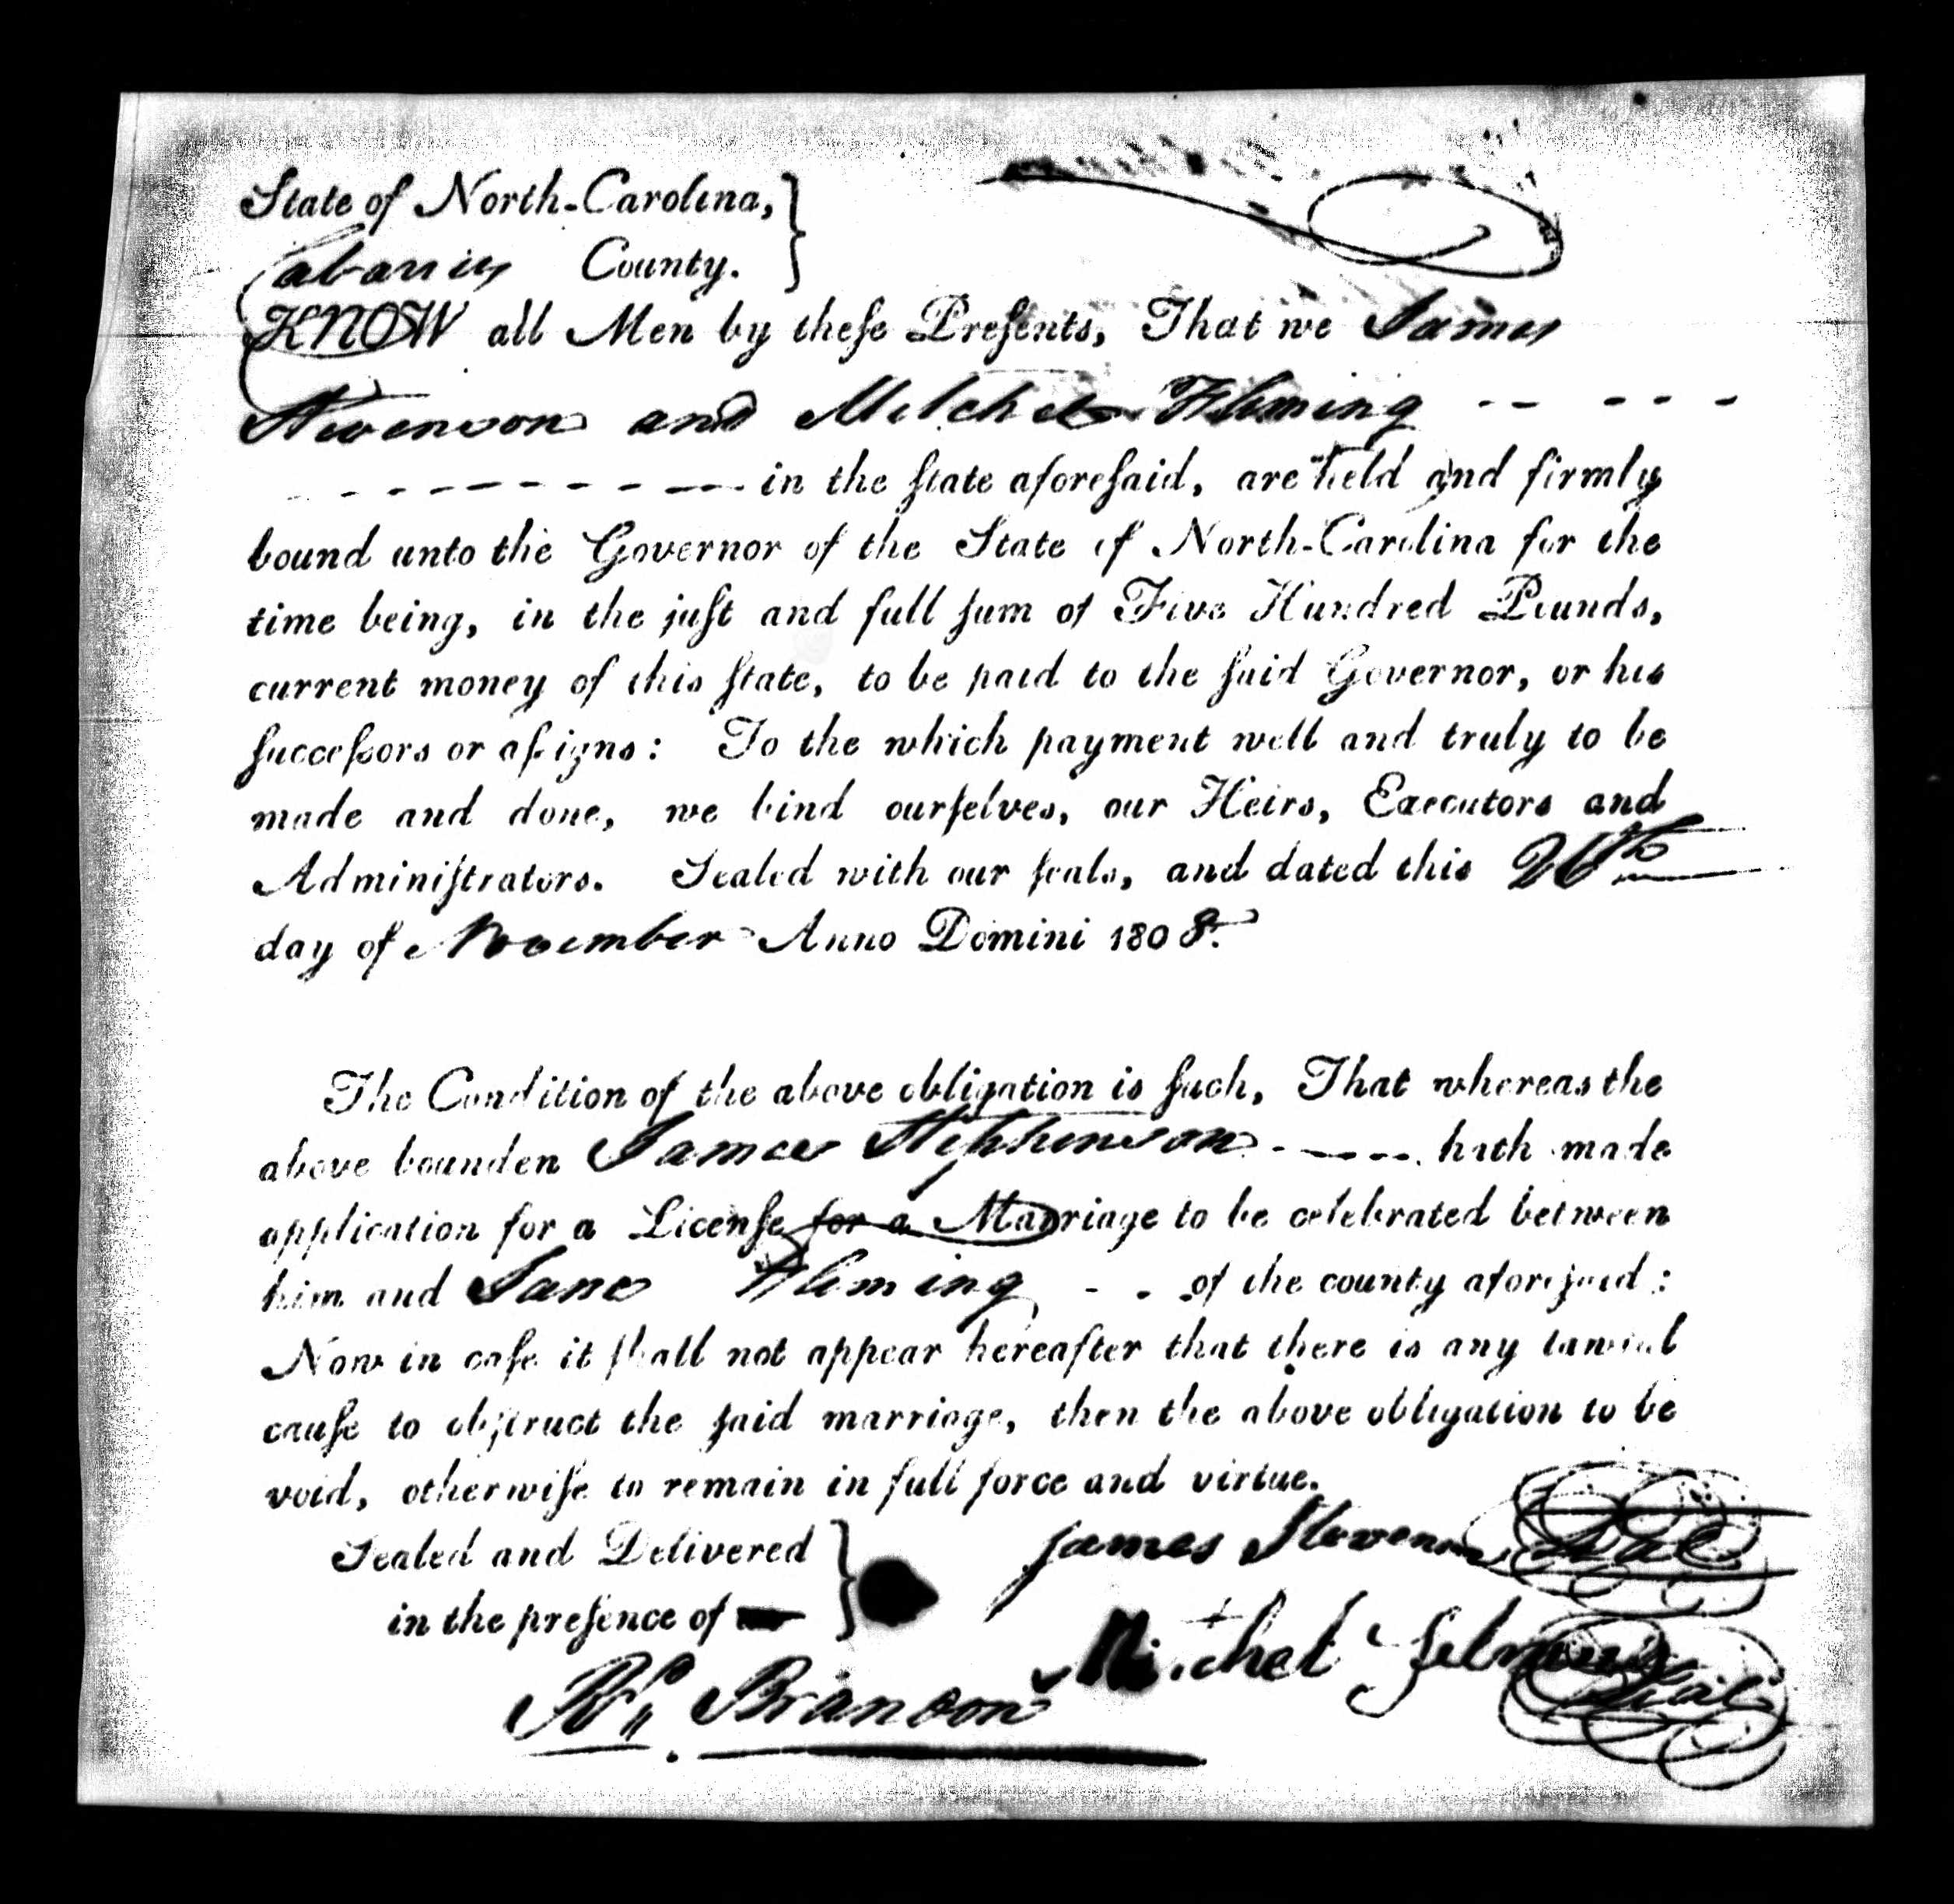 State of North-Carolina,
Cabarrus County.
KNOW all Men by theſe Preſents, That we James
Stevenson and Mitchel Fleming
in the ſtate aforeſaid, are held and firmly
bound unto the Governor of the State of North-Carolina for the
time being, in the juſt and full ſum of Five Hundred Pounds,
current money of this ſtate, to be paid to the ſaid Governor, or his
ſucceſsors or aſsigns: To the which payment well and truly to be
made and done, we bind ourſelves, our Heirs, Executors and
Adminiſtrators. Sealed with our ſeals, and dated this 26th
day of November Anno Domini 1808.
The Condition of the above obligation is ſuch, That whereas the
above bounden James Stephenson hath made
application for a Licenſe for a Marriage to be celebrated between
him and Jane Fleming of the county aforeſaid:
Now in caſe it ſhall not appear hereafter that there is any lawful
cauſe to obſtruct the ſaid marriage, then the above obligation to be
void, otherwiſe to remain in full force and virtue.
Sealed and Delivered
in the preſence of
James Stevenson Seal
Michel Seal
Brandon